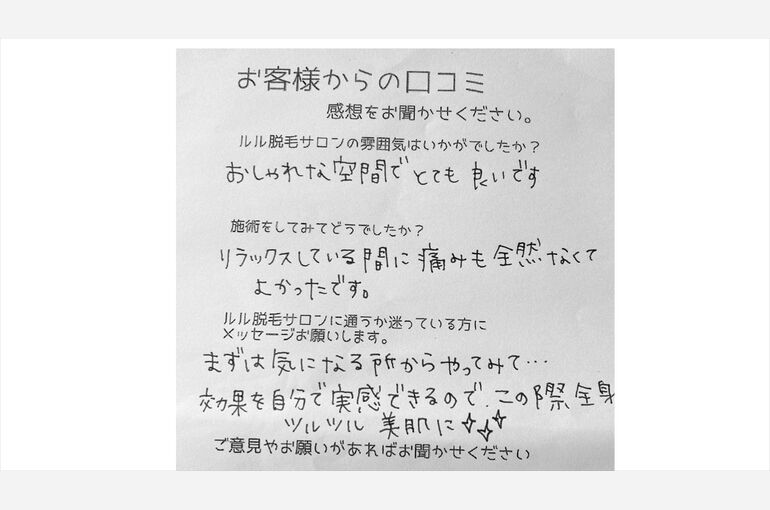 お客様からの口コミ
感想をお聞かせください。
ルル脱毛サロンの雰囲気はいかがでしたか？
おしゃれな空間でとても良いです
施術をしてみてどうでしたか？
リラックスしている間に痛みも全然なくて
よかったです。
ルル脱毛サロンに通うか迷っている方に
メッセージお願いします。
まずは気になる所からやってみて…
効果を自分で実感できるので、この際全身
ツルツル美肌に✧✧✧
ご意見やお願いがあればお聞かせください